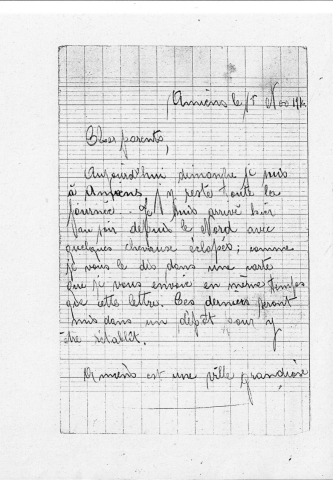 Amiens le 1er Nov 1914
Cher parents,
Aujourd'hui dimanche je suis
à Amiens j'y reste toute la
journée. Je suis arrivé hier
au soir depuis le Nord avec
quelques chevaux éclopés; comme
je vous le dis dans une carte
que je vous envoie en même temps
que cette lettre. Ces derniers seront
mis dans un dépôt pour y
être rétablit.
Amiens est une ville grandiose